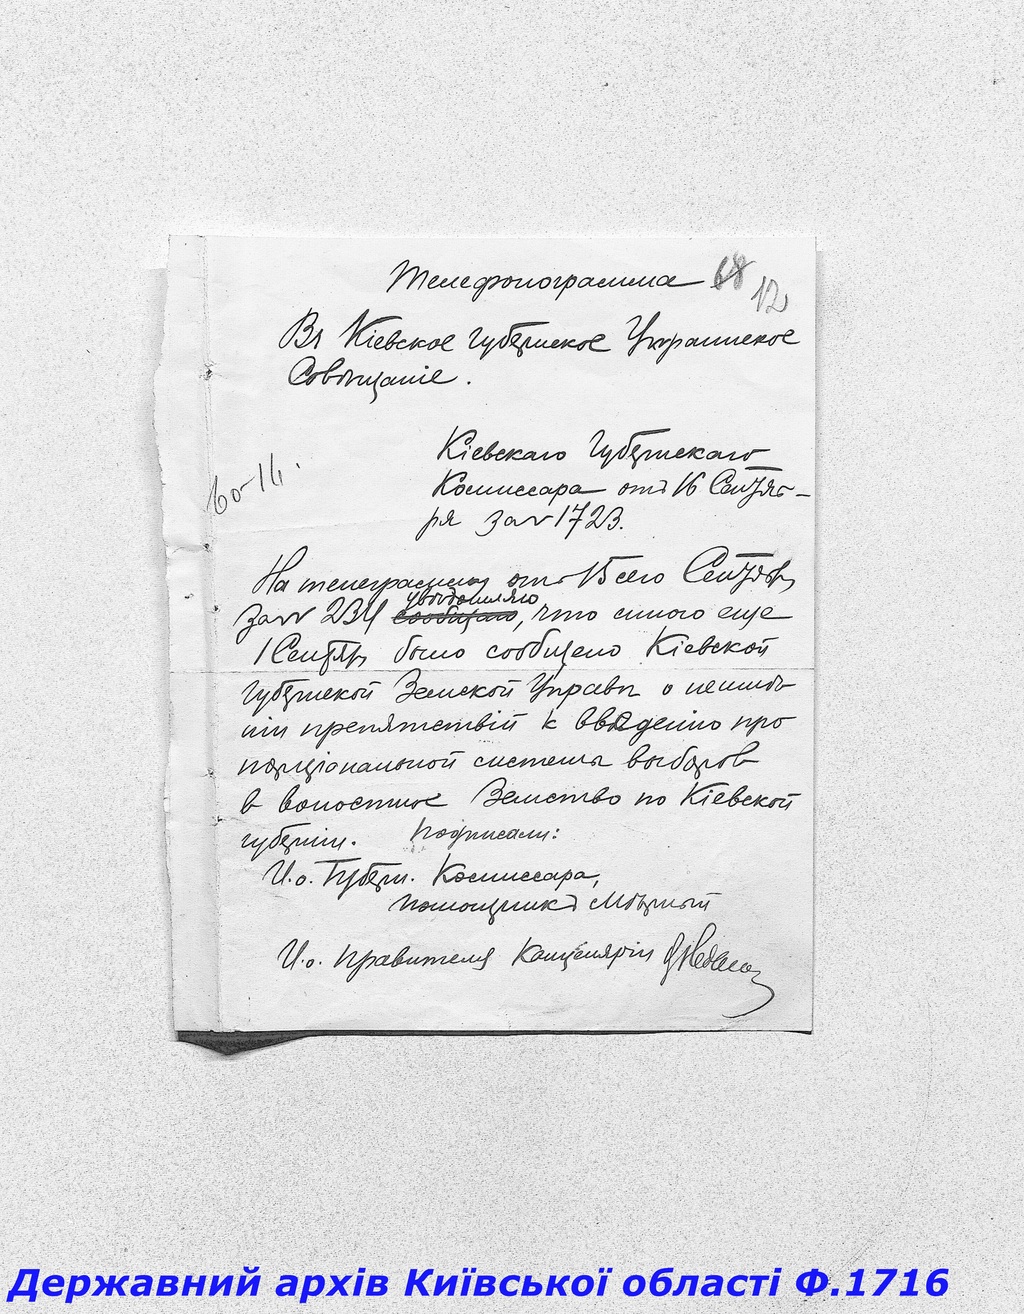 Телефонограмма 68
12
Въ Кіевское Губернское Украинское
Совѣщаніе.
Кіевскаго Губернскаго
Комиссара отъ 16 Сентяб-
ря за № 1723.
60-14.
На телеграмму отъ 15 сего Сентяб
за № 234 сообщаю уведомляю, что мною еще
1 Сентяб было сообщено Кіевской
Губернской Земской Управѣ о неимѣ-
ніи препятствій к введенію про
порціональной системы выборов
в волостное Земство по Кіевской
губерніи. Подписали:
И.о. Губерн. Комиссара,
помощникъ
И.о. Правителя Канцеляріи
Державний архів Київської області Ф.1716